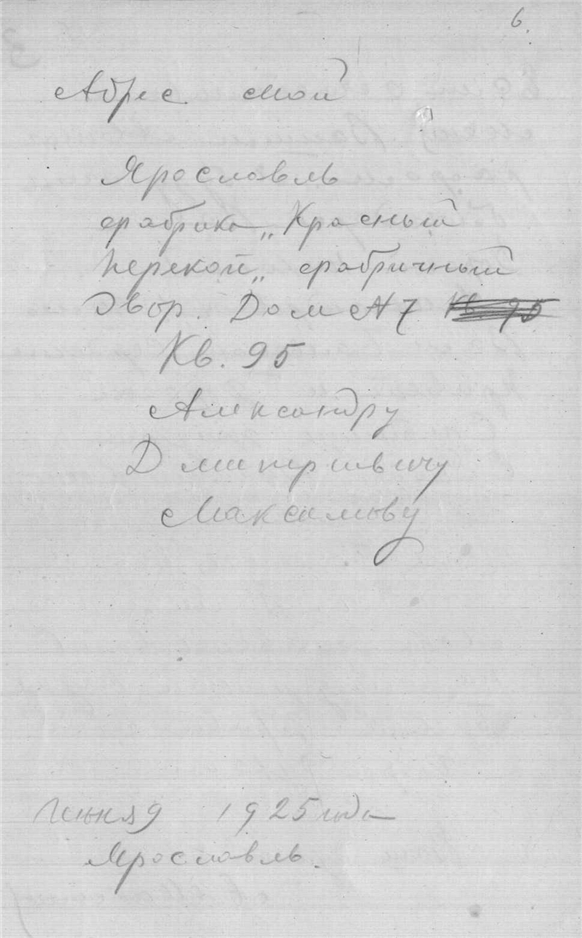 6.
Адрес мой
Ярославль
фабрика „Красный
Перекоп„ фабричный
Двор. Дом № 7 Кв 95
Кв. 95
Александру
Дмитриевичу
Максимову
Июня 9 1925 года
Ярославль.